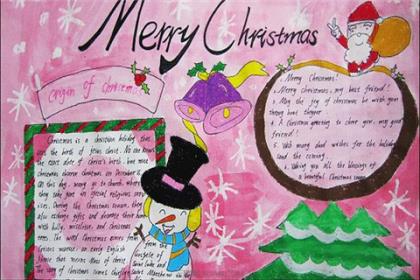 Merry Christmas
origin of Christmas
Christmas is a christian holiday that
the birth of Jesus Christ. No one knows
the exact date of Christ's birth, but most
christians observe christmas on December
On this day, many go to church, where
they take part in special religious
During the Christmas season, they
also exchange gifts and decorate their homes
with holly, mistletoe, and Christmas
trees. The word Christmas comes from
an early English
that means Mass of christ.
The story of Christmas comes chiefly
from the
Saint Luke and
Saint Matthew in the
Merry Christmas!
Merry Christmas, my best friend!
May the joy of christmas be with you
A Christmas greeting to cheer you, my good
friend!
With many good wishes for the holidays
and the coming.
Wishing you all the blessings of
a beautiful Christmas season.